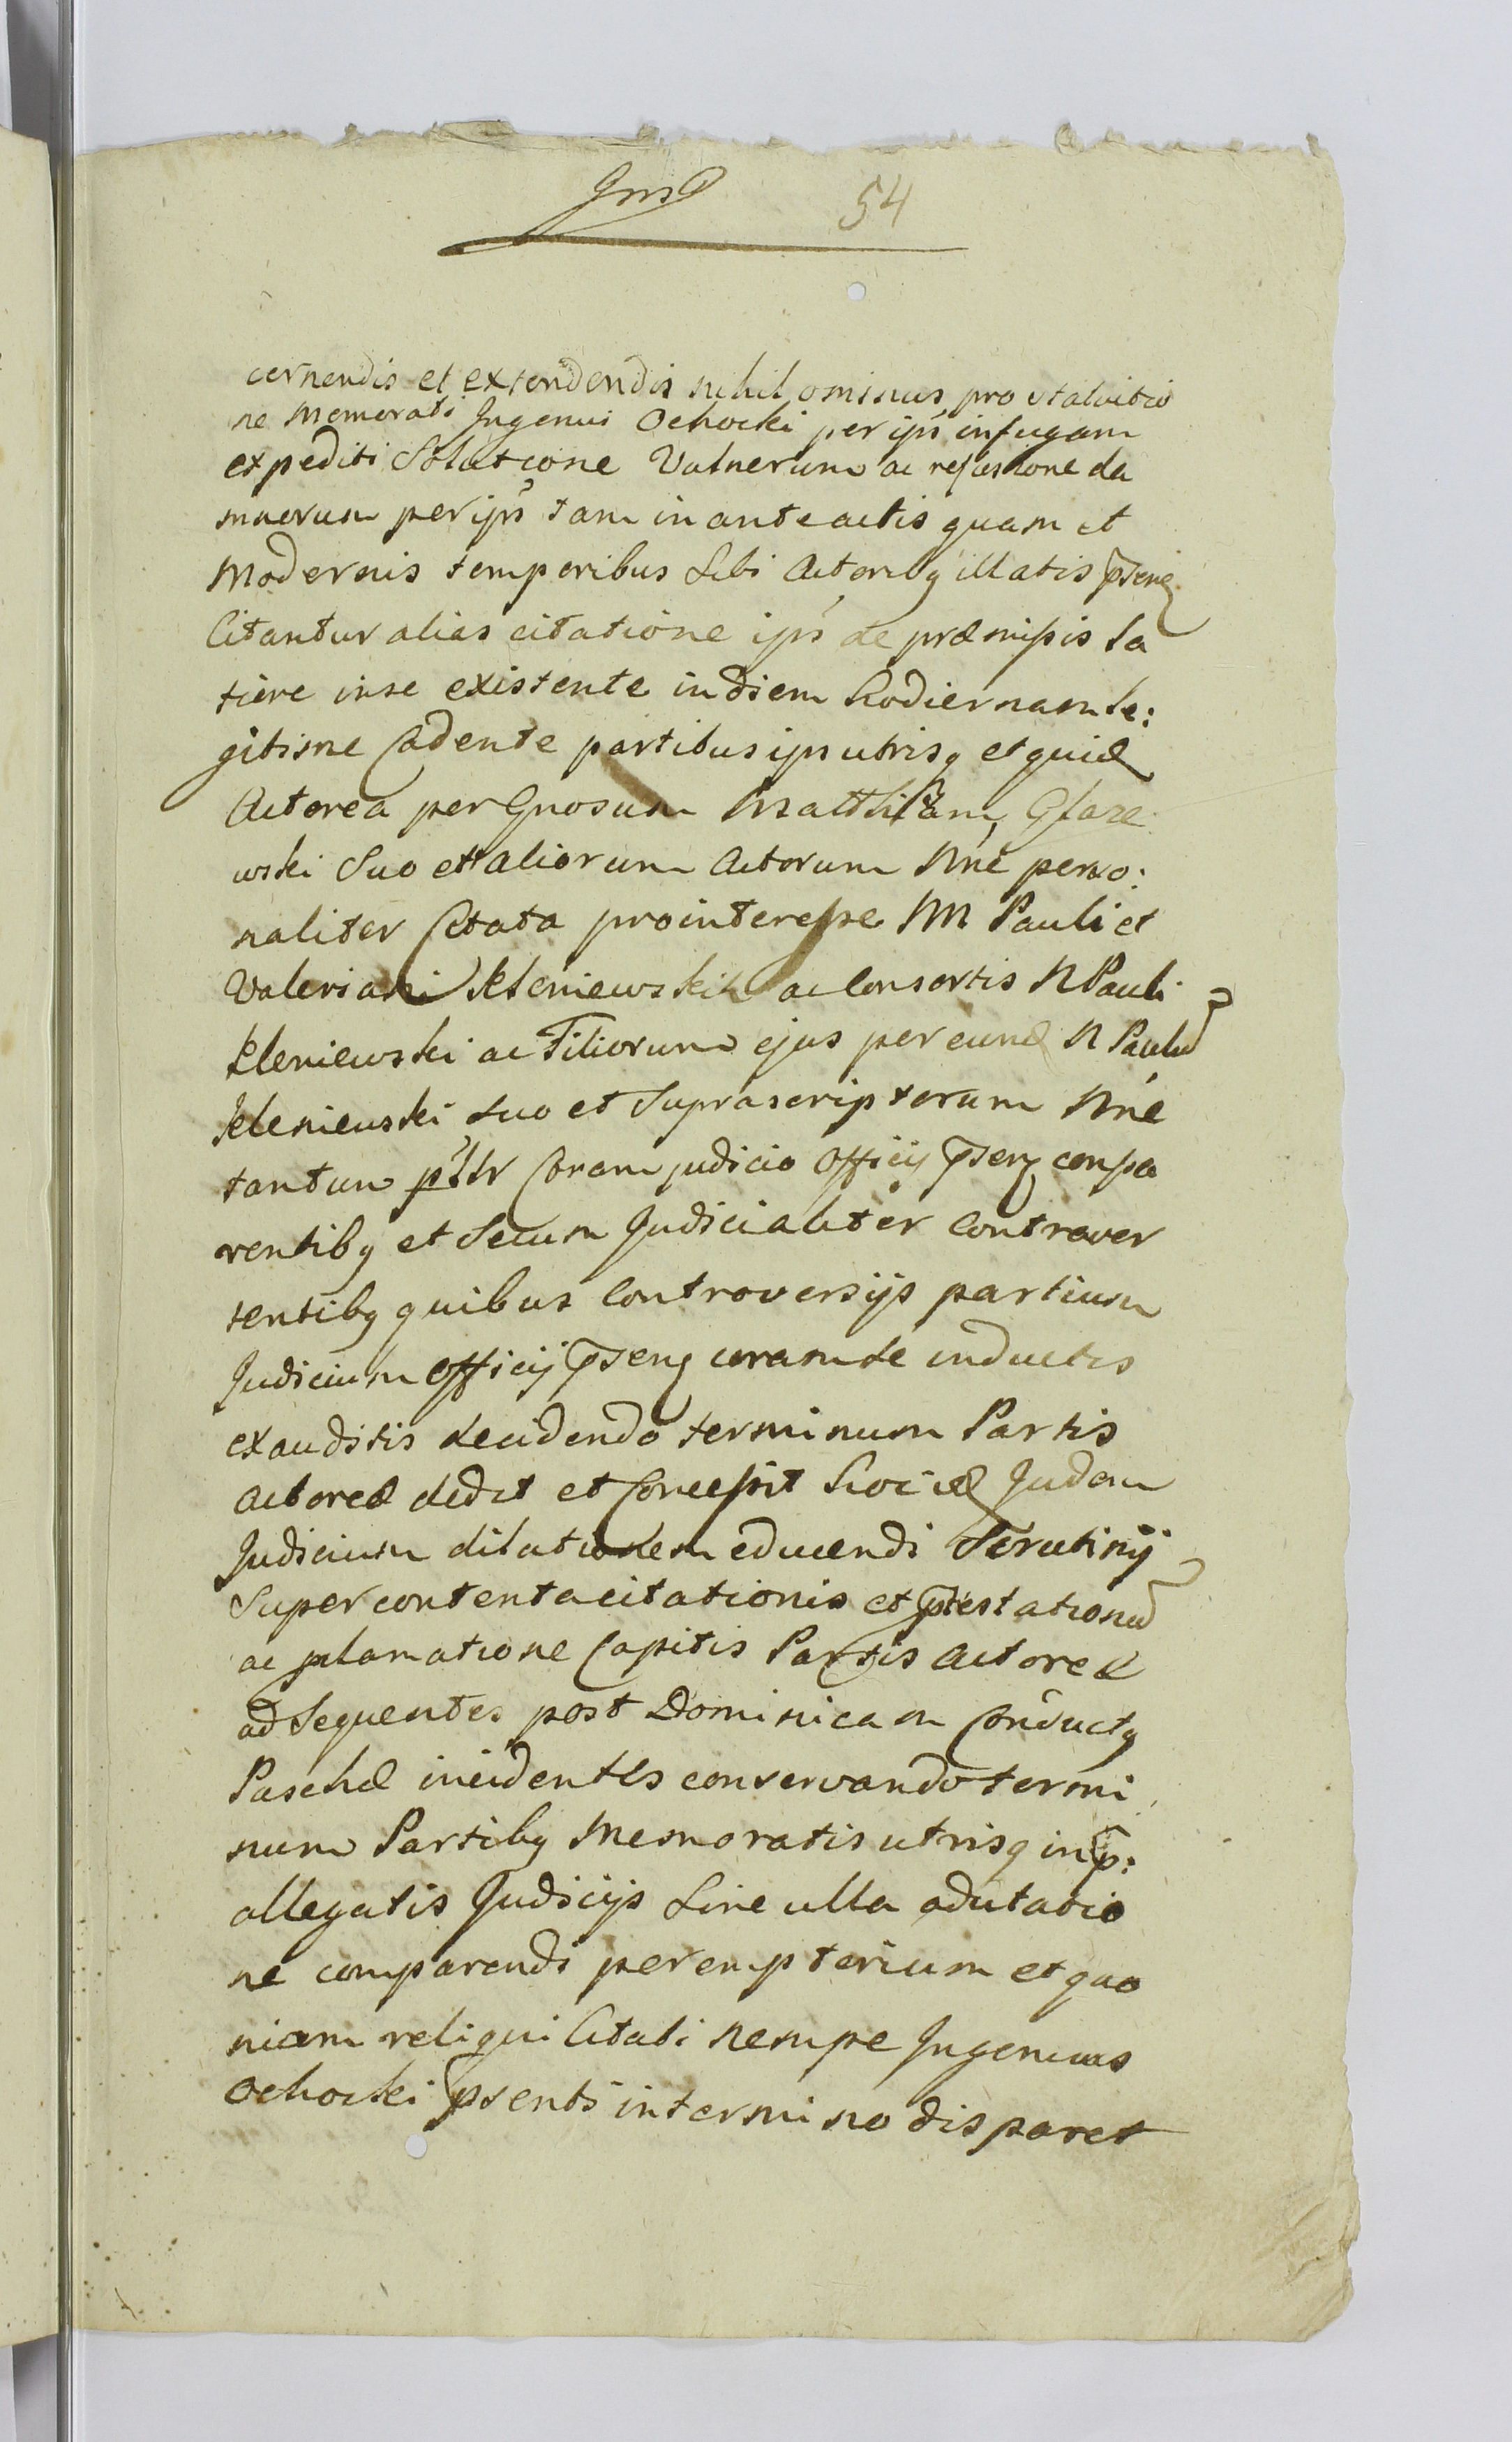 54
cernendis et extendendis nihil ominus pro statuitio
ne Memorati Ingenui Ochocki per ips infugam
expediti Solutione Vulnerum ac refusione da
mnorum per ips tam in anteactis quam et
Modernis temporibus Sibi Actoribq illatis pseng
Citantur alias citatione ips de præmissis la
tiore inse existente indiem hodiernam le:
gitime Cadente partibus ips utrisq et quid
Actorea per Gnosum Matthiam Głaze
wski Suo et aliorum Actorum Nne perso:
naliter Citata prointeresse MM Pauli et
Valeriani Kleniewskich ac Consortis N Pauli
Kleniewski ac Filiorum ejus per eund N Paulu
Kleniewski suo et Suprascriptorum Nne
tantum pslr Coram judicio Officij pseng compa
rentibq et Secum Judicialiter Controver
tentibq quibus Controversijs partium
Judicium Officij pseng coramse inductis
exauditis decidendo terminum Partis
Actoreæ dedit et Concessit hocid Judem
Judicium dilationem educendi Scrutinij
Super contenta citationis et ptestationu
ac plamatione Capitis Partis Actoreæ
ad Sequentes post Dominicam Conductq
Paschæ incidentes conservando termi
num Partibq Memoratis utrisq in p:
allegatis Judicijs Sine ulla adcitatio
ne comparendi peremptorium et quo
niam reliqui Citati nempe Ingenuus
Ochocki psenti intermino disparet